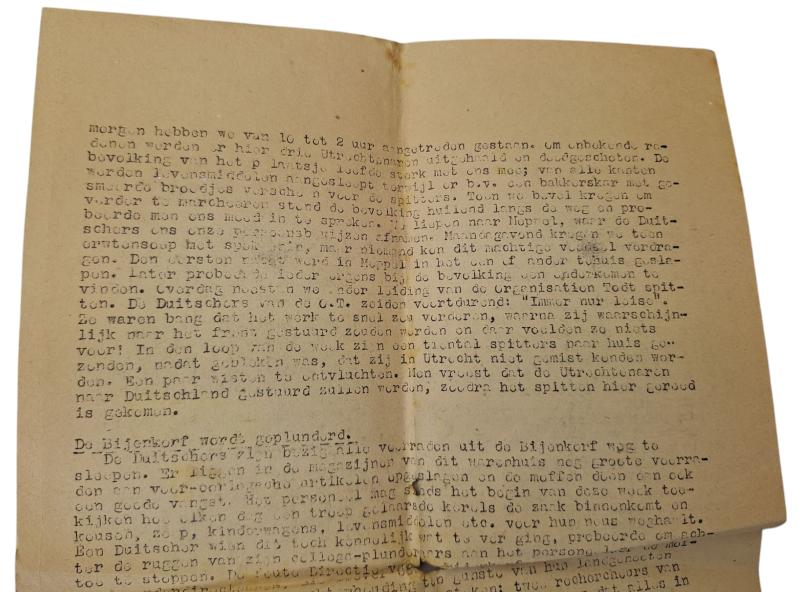 morgen hebben we van 10 tot 2 uur aangetreden gestaan. om onbekende re-
denen werden er hier drie Utrechtenaren uitgehaald en doodgeschoten. De
bevolking van het p laatsje leefde sterk met ons mee; van alle kanten
werden levensmiddelen aangesleept terwijl er b.v. een bakkerskar met ge-
smeerde broodjes verscheen voor de spitters. Toen we bevel kregen om
verder te marcheeren stond de bevolking huilend langs de weg en pro-
beerde men ons moed in te spreken. liepen naar Meppel, waar de Duit-
schers ons onze persoonsb wijzen afnamen. Maandagavond kregen we toen
erwtensoep met spek, maar niemand kon dit machtige voedsel verdra-
gen. Den eersten nacht werd in Meppel in het een of ander tehuis gesla-
pen. Later probeerde ieder ergens bij de bevolking een onderkomen te
vinden. Overdag moesten we onder leiding van de Organisation Todt spit-
ten. De Duitschers van de O.T. zeiden voortdurend: "Immer nur leise".
Ze waren bang dat het werk te snel zou vorderen, waarna zij waarschijn-
lijk naar het front gestuurd zouden worden en daar voelden ze niets
voor! In den loop van de week zijn een tiental spitters naar huis ge-
zonden, nadat gebleken was, dat zij in Utrecht niet gemist konden wor-
den. Een paar wisten te ontvluchten. Men vreest dat de Utrechtenaren
naar Duitschland gestuurd zullen worden, zoodra het spitten hier gereed
is gekomen.
De Bijenkorf wordt geplunderd.
De Duitschers zijn bezig alle voorraden uit de Bijenkorf weg te
sleepen. Er liggen in de magazijnen van dit warenhuis nog groote voorra-
den aan voor-oorlogsche artikelen opgeslagen en de moffen doen dan ook
een goede vangst. Het personeel mag sinds het begin van deze week toe-
kijken hoe elken dag een troep gelaarsde kerels de zaak binnenkomt en
kousen, zeep, kinderwagens, levensmiddelen etc. voor hun neus weghaalt.
Een Duitscher wien dit toch kennelijk wat te ver ging, probeerde om ach-
ter de ruggen van zijn collega-plunderaars aan het personeel
toe te stoppen. De foute Directie ten gunste van hun landgenooten
twee rechercheurs van
dat alles in